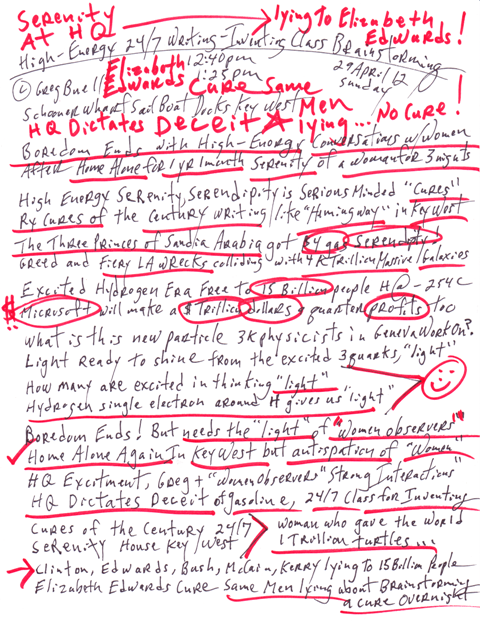 Serenity → lying To Elizabeth
At HQ Edwards!
High-Energy 24/7 Writing-Inventing Class Brainstorming
© Greg Buell Elizabeth 12:40pm 29 April 12
Edwards Cure Same 1:25pm Sunday
Schooner Wharf Sail Boat Docks Key West Men
HQ Dictates Deceit lying... No Cure!
Boredom Ends with High-Energy Conversations w/Women
After Home Alone for 1 yr 1 month Serenity of a woman for 3 nights
High Energy Serenity, Serendipity is Serious Minded "Cures"
Rx Cures of the Century writing like "Hemingway" in Key West
The Three Princes of Saudia Arabia got $4 gas Serendipity!
Greed and Fiery LA Wrecks colliding with 4 R Trillion Massive Galaxies
Excited Hydrogen Era Free to 15 Billion people H@-254C
$ Microsoft will make a $ Trillion dollars a quarter profits too
what is this new particle 3K physicists in Geneva Work On?
Light Ready to shine from the excited 3 quarks, "light"
How many are excited in thinking "light"
Hydrogen single electron around it gives us "light"
Boredom Ends! But needs the "light" of "Women observers"
Home Alone Again In Key West but antispation of "Women"
HQ Excitment, Greg + "Women Observers" "Strong Interactions"
HQ Dictates Deceit of gasoline, 24/7 Class for Inventing
Cures of the Century 24/7 > Woman who gave the World
Serenity House Key West 1 Trillion turtles...
→ Clinton, Edwards, Bush, McCain, Kerry lying to 15 Billion People
Elizabeth Edwards Cure Same Men lying about Brainstorming
a Cure Overnight